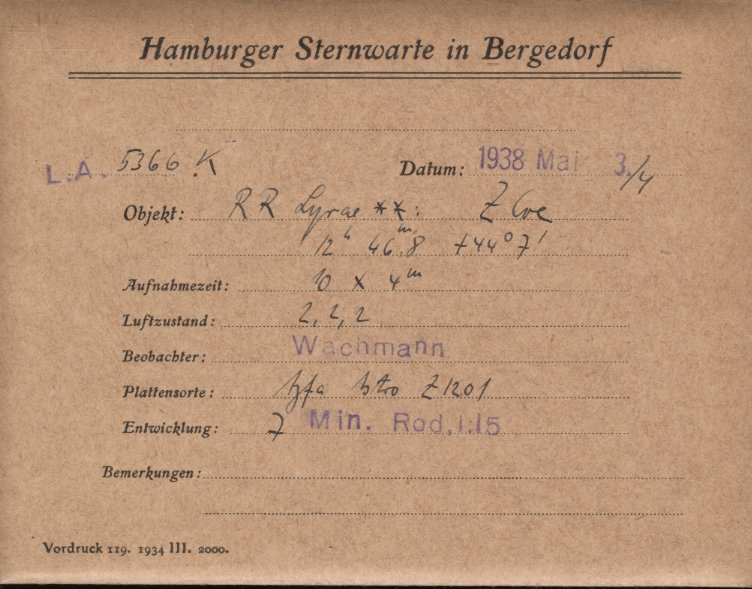 Hamburger Sternwarte in Bergedorf
L.A. 5366 K Datum: 1938 Mai 3./4
Objekt: RR Lyrae **: Z Cve
12h 46m.8 +44° 7'
Aufnahmezeit: 10 x 4m
Luftzustand: 2, 2, 2
Beobachter: Wachmann
Plattensorte: Astro Z1201
Entwicklung: 7 Min. Rod. 1:15
Bemerkungen:
Vordruck 119. 1934 III. 2000.